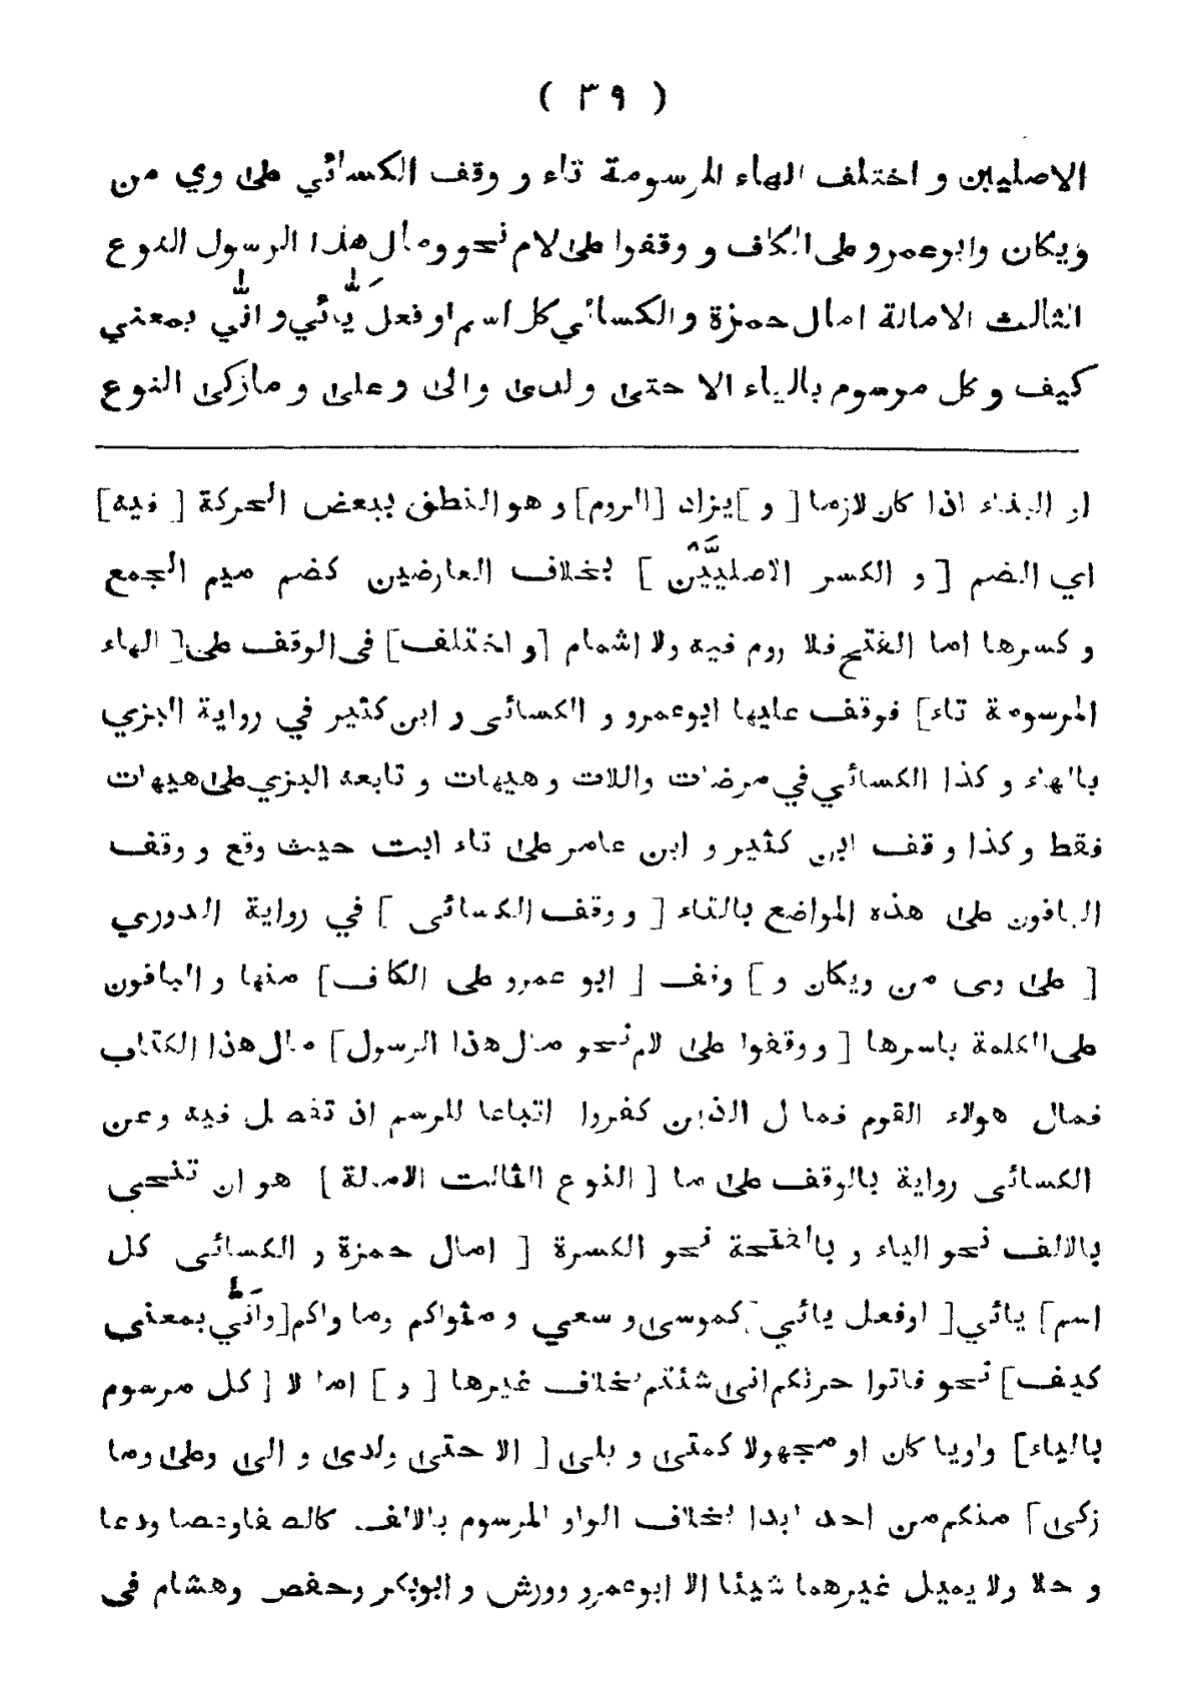 ( ٣٩ )
الاصليين و اختلف الهاء المرسومة تاء و وقف الكسائي على وي من
ويكان وابوعمرو على الكاف و وقفوا على لام نحو ومال هذا الرسول النوع
الثالث الامالة امال حمزة والكسائي كل اسم او فعل يائي و اني بمعني
كيف و كل مرسوم بالياء الا حتى و لدى والى و على و مازكى النوع
او البناء اذا كان لازما [ و ] يزاد [الروم] و هو النطق ببعض الحركة [ فيه]
اي الضم [ و الكسر الاصليين ] بخلاف العارضين كضم ميم الجمع
و كسرها اما الفتح فلا روم فيه ولا اشمام [و اختلف] في الوقف على [ الهاء
المرسومة تاء] فوقف عليها ابوعمرو و الكسائى و ابن كثير في رواية البزي
بالهاء و كذا الكسائي في مرضات واللات و هيهات و تابعه البزي على هيهات
فقط و كذا وقف ابن كثير و ابن عامر على تاء ابت حيث وقع و وقف
الباقون على هذه المواضع بالتاء [ و وقف الكسائى ] في رواية الدوري
[ على وى من ويكان و ] وقف [ ابو عمرو على الكاف] منها و الباقون
على الكلمة باسرها [ و وقفوا على لام نحو مال هذا الرسول ] مال هذا الكتاب
فمال هولاء القوم فمال الذين كفروا اتباعا للرسم اذ تفصل فيه وعن
الكسائى رواية بالوقف على ما [ النوع الثالث الامالة ] هو ان تنحى
بالالف نحو الياء و بالفتحة نحو الكسرة [ امال حمزة و الكسائى كل
اسم] يائي [ اوفعل يائي ] كموسى و سعي و مثواكم وما واكم [واني بمعني
كيف] نحو فاتوا حرثكم انى شئتم بخلاف غيرها [ و ] اما لا [ كل مرسوم
بالياء] واويا كان او مجهولا كمتى و بلى [ الا حتى ولدى و الى وعلى وما
زكى ] منكم من احد ابدا بخلاف الواو المرسوم بالالف كالصفاوعصا ودعا
و خلا ولا يميل غيرهما شيئا الا ابوعمرو وورش و ابوبكر وحفص وهشام فى